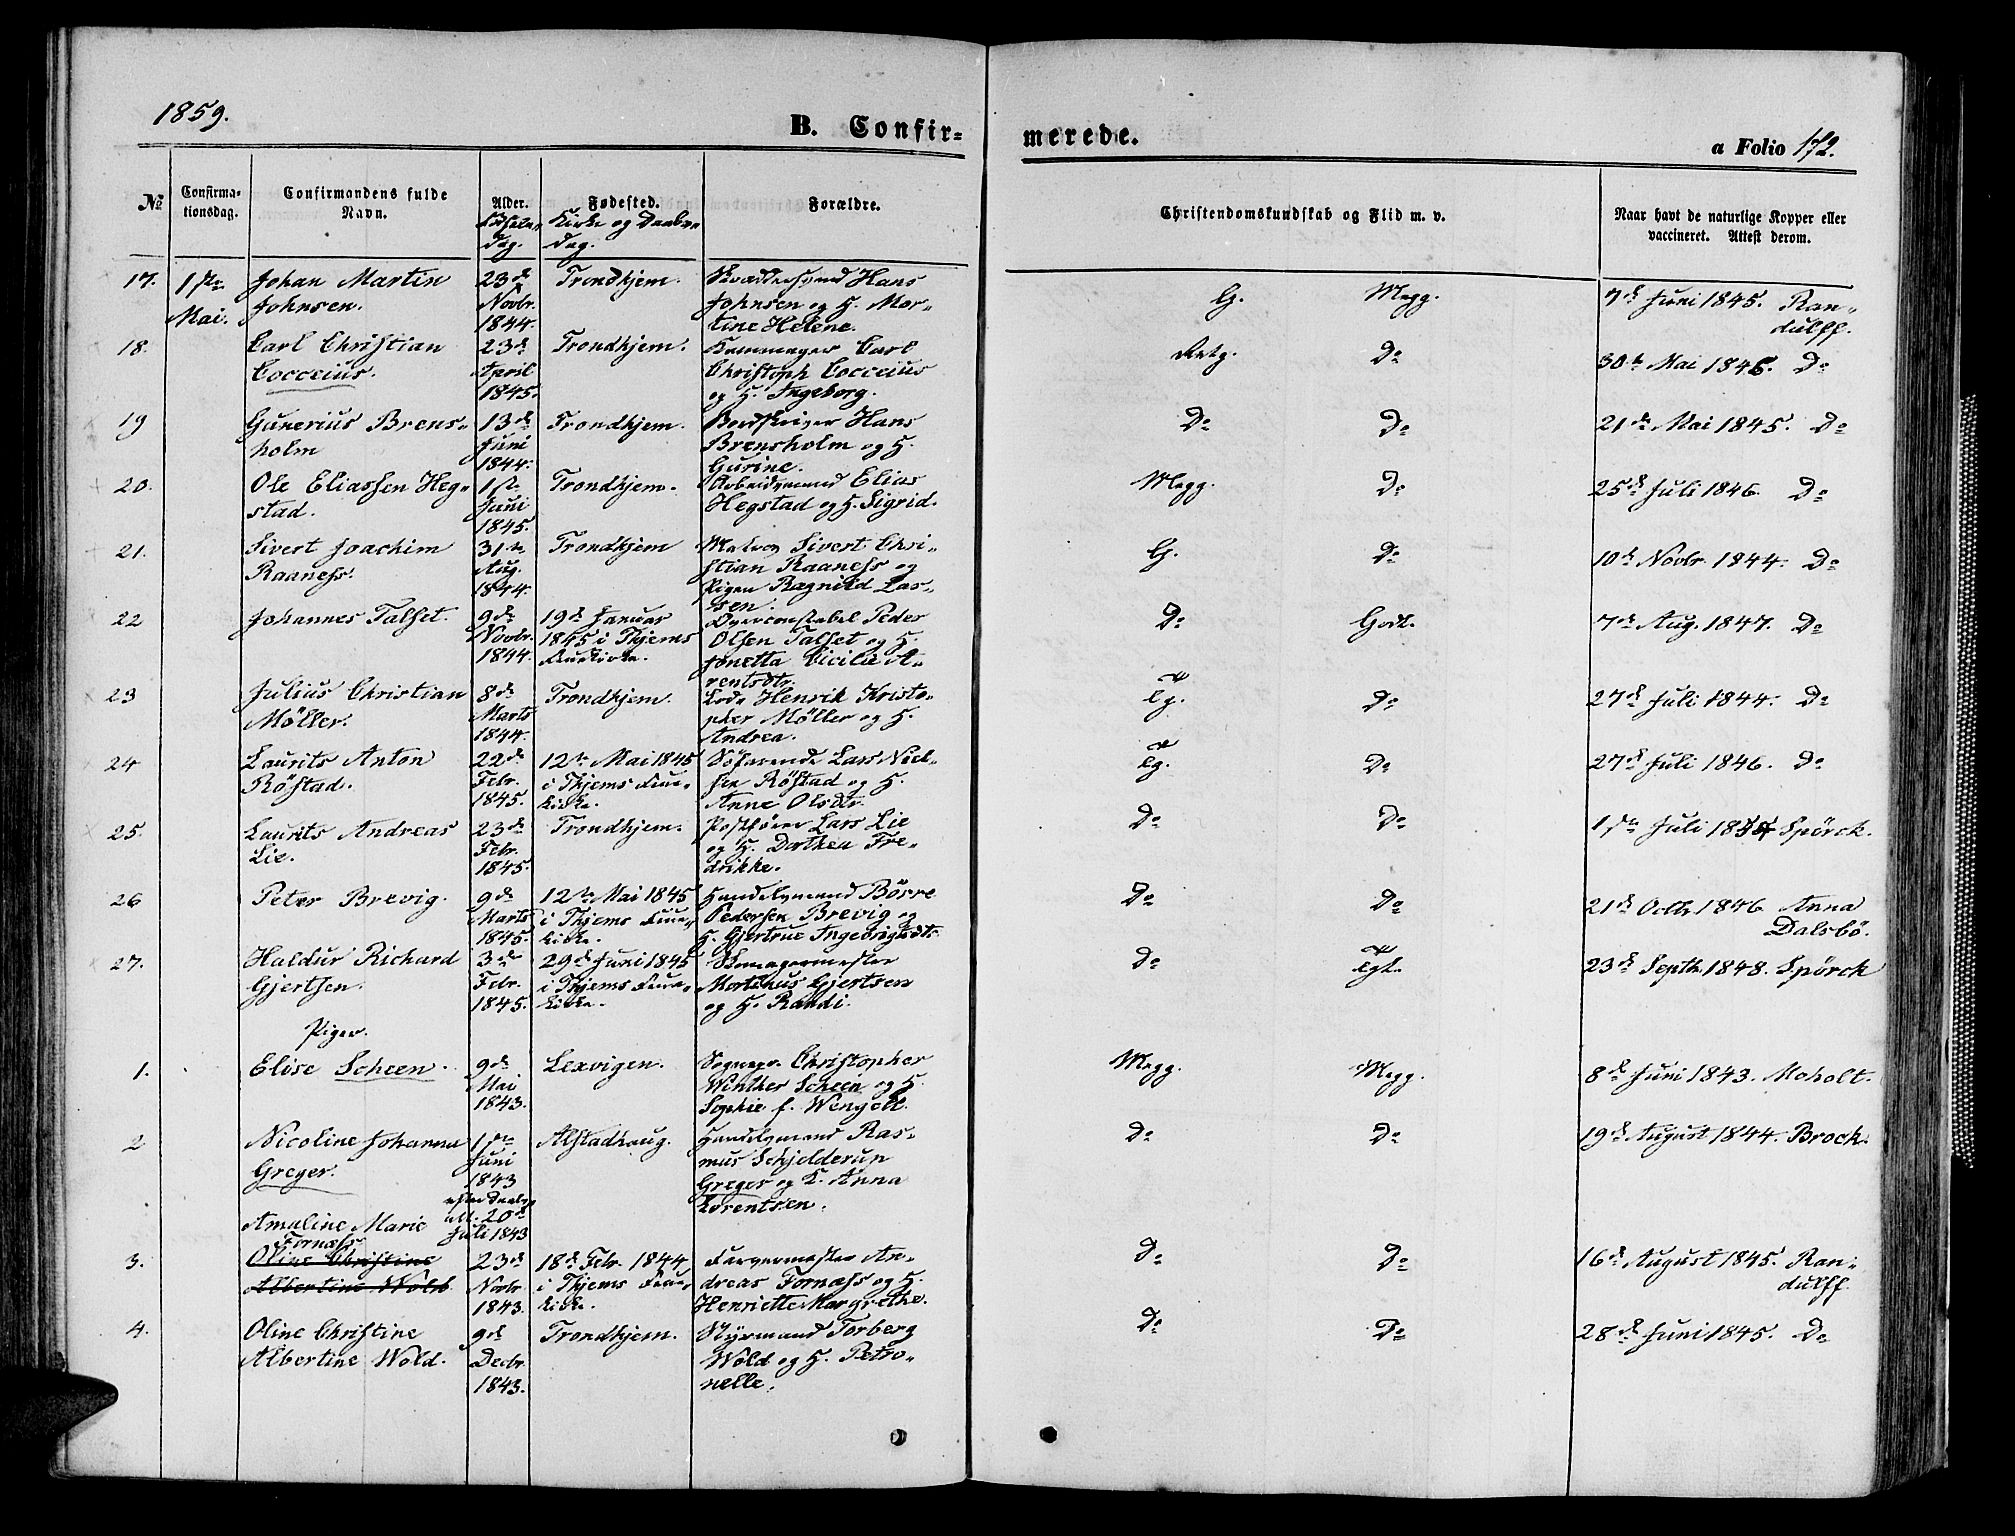 1859.
B. Confir-
merede.
a Folio 172.
No
Confirma-
tionsdag.
Confirmandens fulde
Navn.
Alder.
Fødsels-
dag.
Fødested.
Kirke og Daabs-
dag.
Forældre.
Christendomskundskab og Flid m. v.
Naar havt de naturlige Kopper eller
vaccineret. Attest derom.
17. 1ste Mai. Johan Martin
Johnsen.
23de
Novbr.
1844.
Trondhjem.
Hans
Johnsen og H. Mar-
tine Helene.
G. Megg.
7de Juni 1845. Ran-
dulff.
18. Carl Christian
Cocceius.
23de
April
1845.
Trondhjem.
Kammager Carl
Christoph Cocceius
og H. Ingeborg.
Do
30te Mai 1846. Do
19 Gunerius Brens-
holm
13de
Juni
1844.
Trondhjem.
Hans
Brensholm og H.
Gurine.
Do Do
21de Mai 1845. Do
20. Ole Eliassen Heg-
stad.
1ste
Juni
1845.
Trondhjem.
Arbeidsmand Elias
Hegstad og H. Sigrid.
Megg. Do
25de Juli 1846. Do
21. Sivert Joachim
Raaness.
31te
Aug.
1844.
Trondhjem
Sivert Chri-
stian Raaness og
Pigen Ragnild Las-
sen.
G. Do
10de Novbr. 1844. Do
22 Johannes Talset.
9de
Novbr.
1844.
19de Januar
1845 i Thjems
Fruekirke.
Overconstabel Peder
Olsen Talset og H.
Jonetta Cicilie A-
rentsdtr.
Do Godt.
7de Aug. 1847. Do
23 Julius Christian
Möller.
8de
Marts
1844.
Trondhjem.
Lods Henrik Kristo-
pher Möller og H.
Andrea.
Do
27de Juli 1844. Do
24 Laurits Anton
Röstad.
22de
Febr.
1845.
12te Mai 1845
i Thjems Frue-
kirke.
Söfarende Lars Niel-
sen Röstad og H.
Anne Olsdtr.
Do
27de Juli 1846. Do
25. Laurits Andreas
Lie.
23de
Febr.
1845.
Trondhjem.
Postförer Lars Lie
og H. Dorthea Fre-
drikke.
Do Do
1ste Juli Spörck.
26 Peter Brevig.
9de
Marts
1845.
12te Mai 1845
i Thjems Frue-
kirke.
Handelsmand Börre
Pedersen Brevig og
H. Gjertrue Ingebrigtsdtr.
Do Do
21de Octbr. 1846 Anna
Dalsbö.
27. Haldur Richard
Gjertsen.
3die
Febr.
1845.
29de Juni 1845
i Thjems Frue-
kirke.
Skomagermester
Martinus Gjertsen
og H. Randi.
Do
23de Septbr. 1848. Spörck
Piger.
1. Elise Scheen.
9de
Mai
1843.
Lexvigen.
Sognepr. Christopher
Winther Scheen og H.
Sophie f. Wensell.
Megg. Megg.
8de Juni 1843. Moholt.
2 Nicoline Johanna
Greger.
1ste
Juni
1843
efter Daabs
att. 20de
Juli 1843
Alstadhaug.
Handelsmand Ras-
mus Schjelderup
Greger og K. Anna
Lorentsen.
Do Do
19de August 1844. Brock.
Amaline Marie
Fornæss
3. Oline Christine
Albertine Wold
23de
Novbr.
1843.
18de Febr. 1844
i Thjems Frue-
kirke.
Farvermester An-
dreas Fornæss og H.
Henriette Margrethe.
Do Do
16de August 1845. Ran-
dulff.
4. Oline Christine
Albertine Wold.
9de
Decbr.
1843.
Trondhjem.
Styrmand Torberg
Wold og H. Petro-
nelle.
Do Do
28de Juni 1845. Do